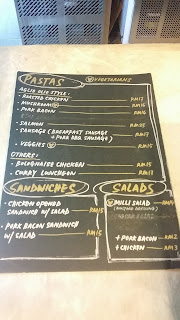 PASTAS
Ⓥ VEGETARIANS
AGLIO OLIO STYLE:
- ROASTED CHICKEN RM17
- MUSHROOM Ⓥ RM15
- PORK BACON RM16
- SALMON RM18
- SAUSAGE (BREAKFAST SAUSAGE + PORK BBQ SAUSAGE) RM17
- VEGGIES Ⓥ RM15
OTHERS:
- BOLOGNAISE CHICKEN RM15
- CURRY LUNCHEON RM17
SANDWICHES
- CHICKEN OPENED
SANDWICH W/ SALAD RM15
- PORK BACON SANDWICH
W/ SALAD RM15
SALADS
Ⓥ MULLI SALAD RM9
+ PORK BACON RM2
+ CHICKEN RM3